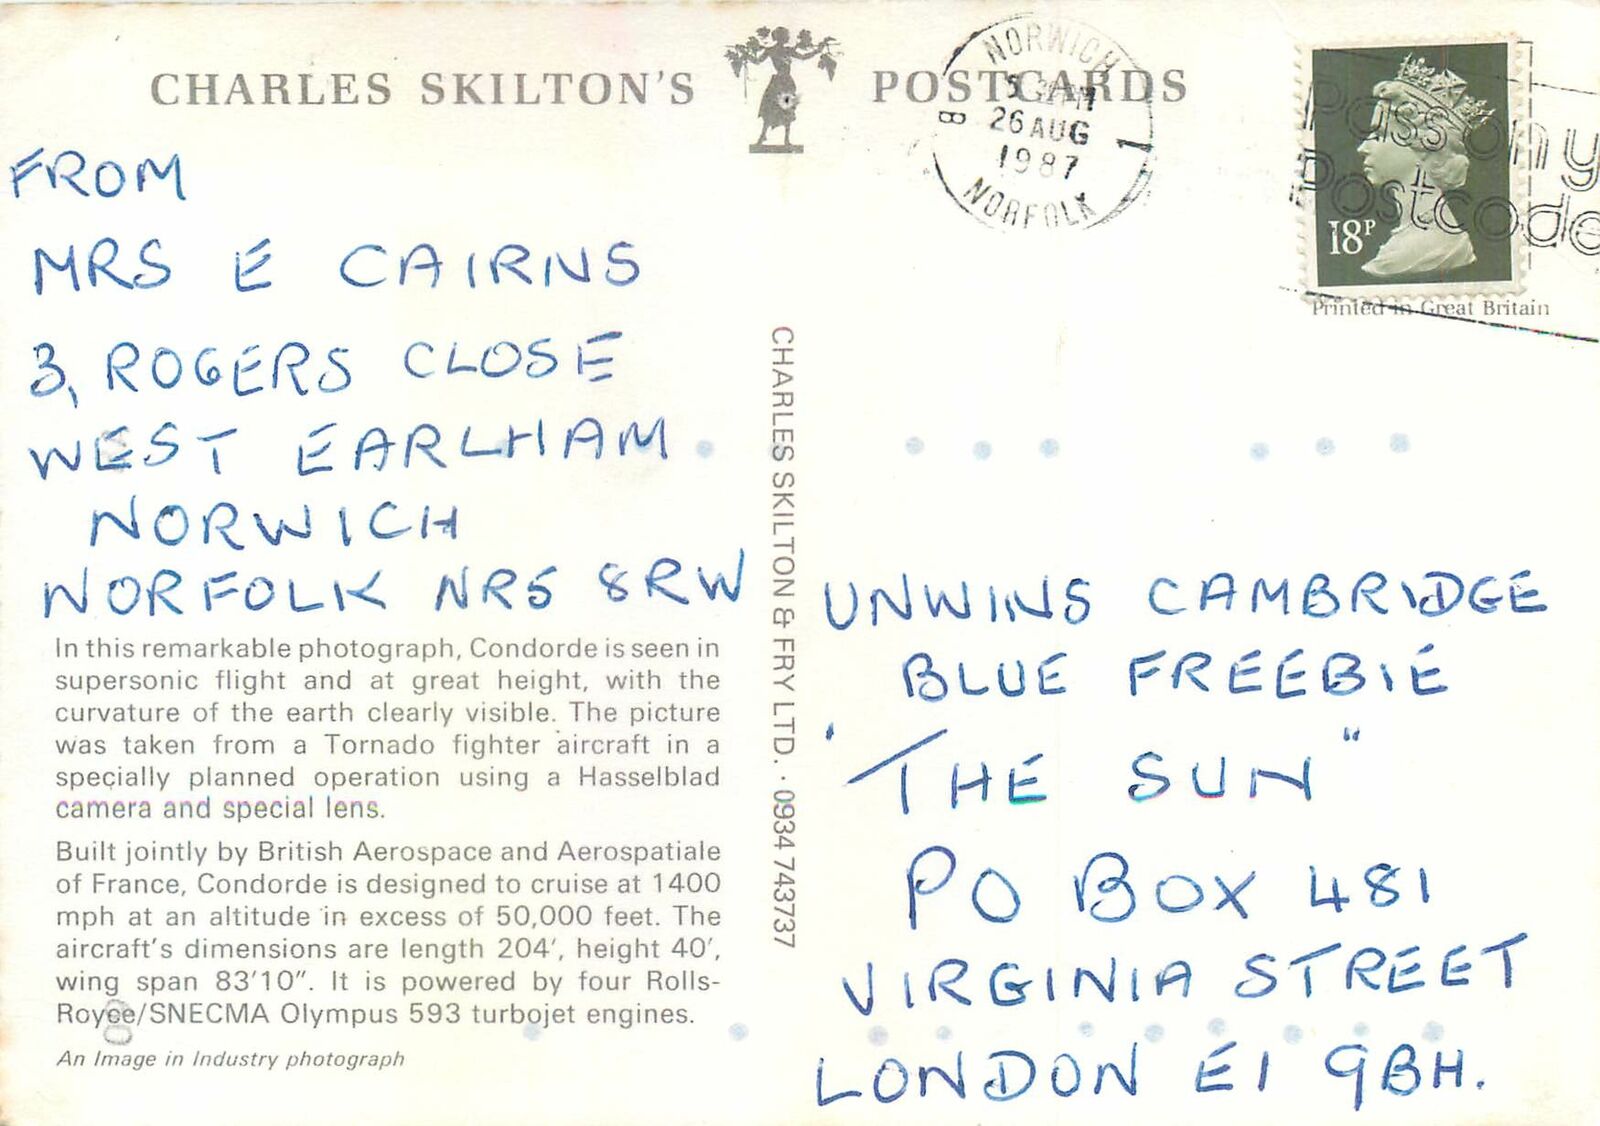 CHARLES SKILTON'S POSTCARDS
NORWICH
26 AUG
1987
NORFOLK
B
1
Pass on y
Postcode
18P
Printed in Great Britain
FROM
MRS E CAIRNS
3, ROGERS CLOSE
WEST EARLHAM
NORWICH
NORFOLK NR5 8RW
In this remarkable photograph, Condorde is seen in
supersonic flight and at great height, with the
curvature of the earth clearly visible. The picture
was taken from a Tornado fighter aircraft in a
specially planned operation using a Hasselblad
camera and special lens.
Built jointly by British Aerospace and Aerospatiale
of France, Condorde is designed to cruise at 1400
mph at an altitude in excess of 50,000 feet. The
aircraft's dimensions are length 204′, height 40′,
wing span 83′10″. It is powered by four Rolls-
Royce/SNECMA Olympus 593 turbojet engines.
An Image in Industry photograph
CHARLES SKILTON & FRY LTD. · 0934 743737
UNWINS CAMBRIDGE
BLUE FREEBIE
'THE SUN"
PO BOX 481
VIRGINIA STREET
LONDON E1 9BH.